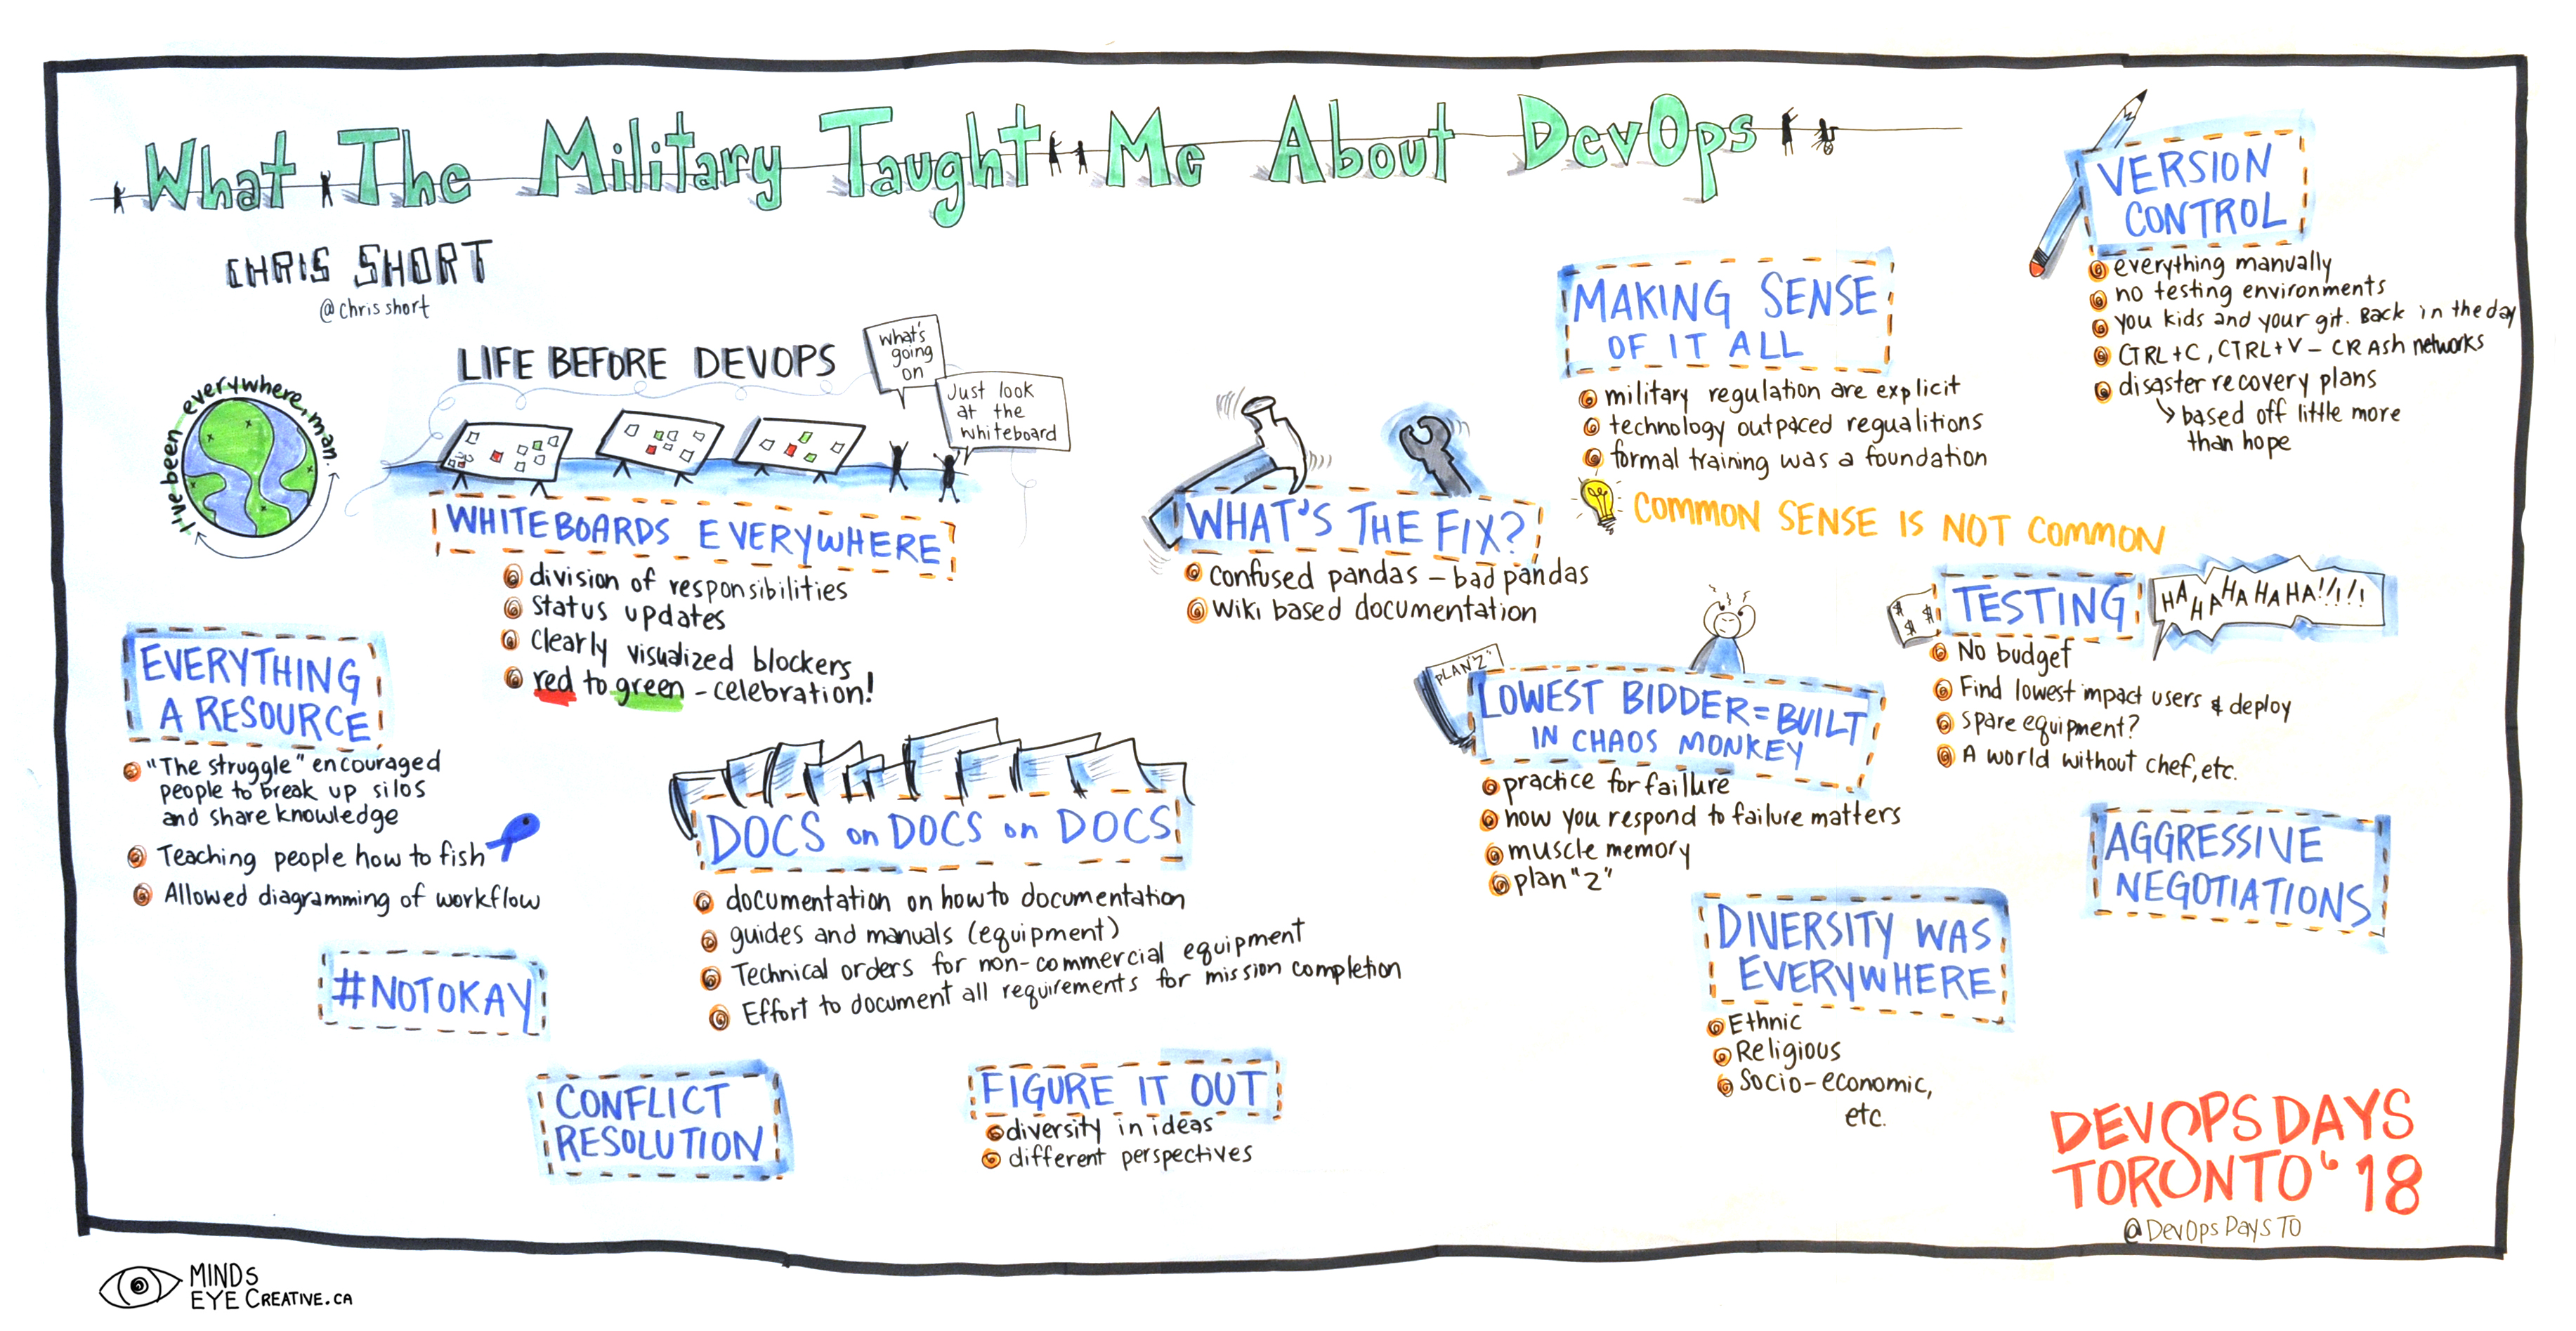 What The Military Taught Me About DevOps
CHRIS SHORT
@chrisshort
I've been everywhere, man.
LIFE BEFORE DEVOPS
what's
going
on
Just look
at the
whiteboard
WHITEBOARDS EVERYWHERE
division of responsibilities
status updates
clearly visualized blockers
red to green - celebration!
EVERYTHING
A RESOURCE
"The struggle" encouraged
people to break up silos
and share knowledge
Teaching people how to fish
Allowed diagramming of workflow
#NOTOKAY
CONFLICT
RESOLUTION
DOCS on DOCS on DOCS
documentation on how to documentation
guides and manuals (equipment)
Technical orders for non-commercial equipment
Effort to document all requirements for mission completion
FIGURE IT OUT
diversity in ideas
different perspectives
WHAT'S THE FIX?
Confused pandas - bad pandas
Wiki based documentation
MAKING SENSE
OF IT ALL
military regulation are explicit
technology outpaced regualitions
formal training was a foundation
COMMON SENSE IS NOT COMMON
VERSION
CONTROL
everything manually
no testing environments
you kids and your git. Back in the day
CTRL+C, CTRL+V - CRASH networks
disaster recovery plans
based off little more
than hope
PLAN "Z"
LOWEST BIDDER = BUILT
IN CHAOS MONKEY
practice for faillure
how you respond to failure matters
muscle memory
plan "Z"
$ $ $
TESTING
HA HA HA HA HA!!!!!
No budget
Find lowest impact users & deploy
spare equipment?
A world without chef, etc.
AGGRESSIVE
NEGOTIATIONS
DIVERSITY WAS
EVERYWHERE
Ethnic
Religious
Socio-economic,
etc.
DEVOPS DAYS
TORONTO '18
@DevOpsDaysTO
MINDS
EYE CREATIVE.CA